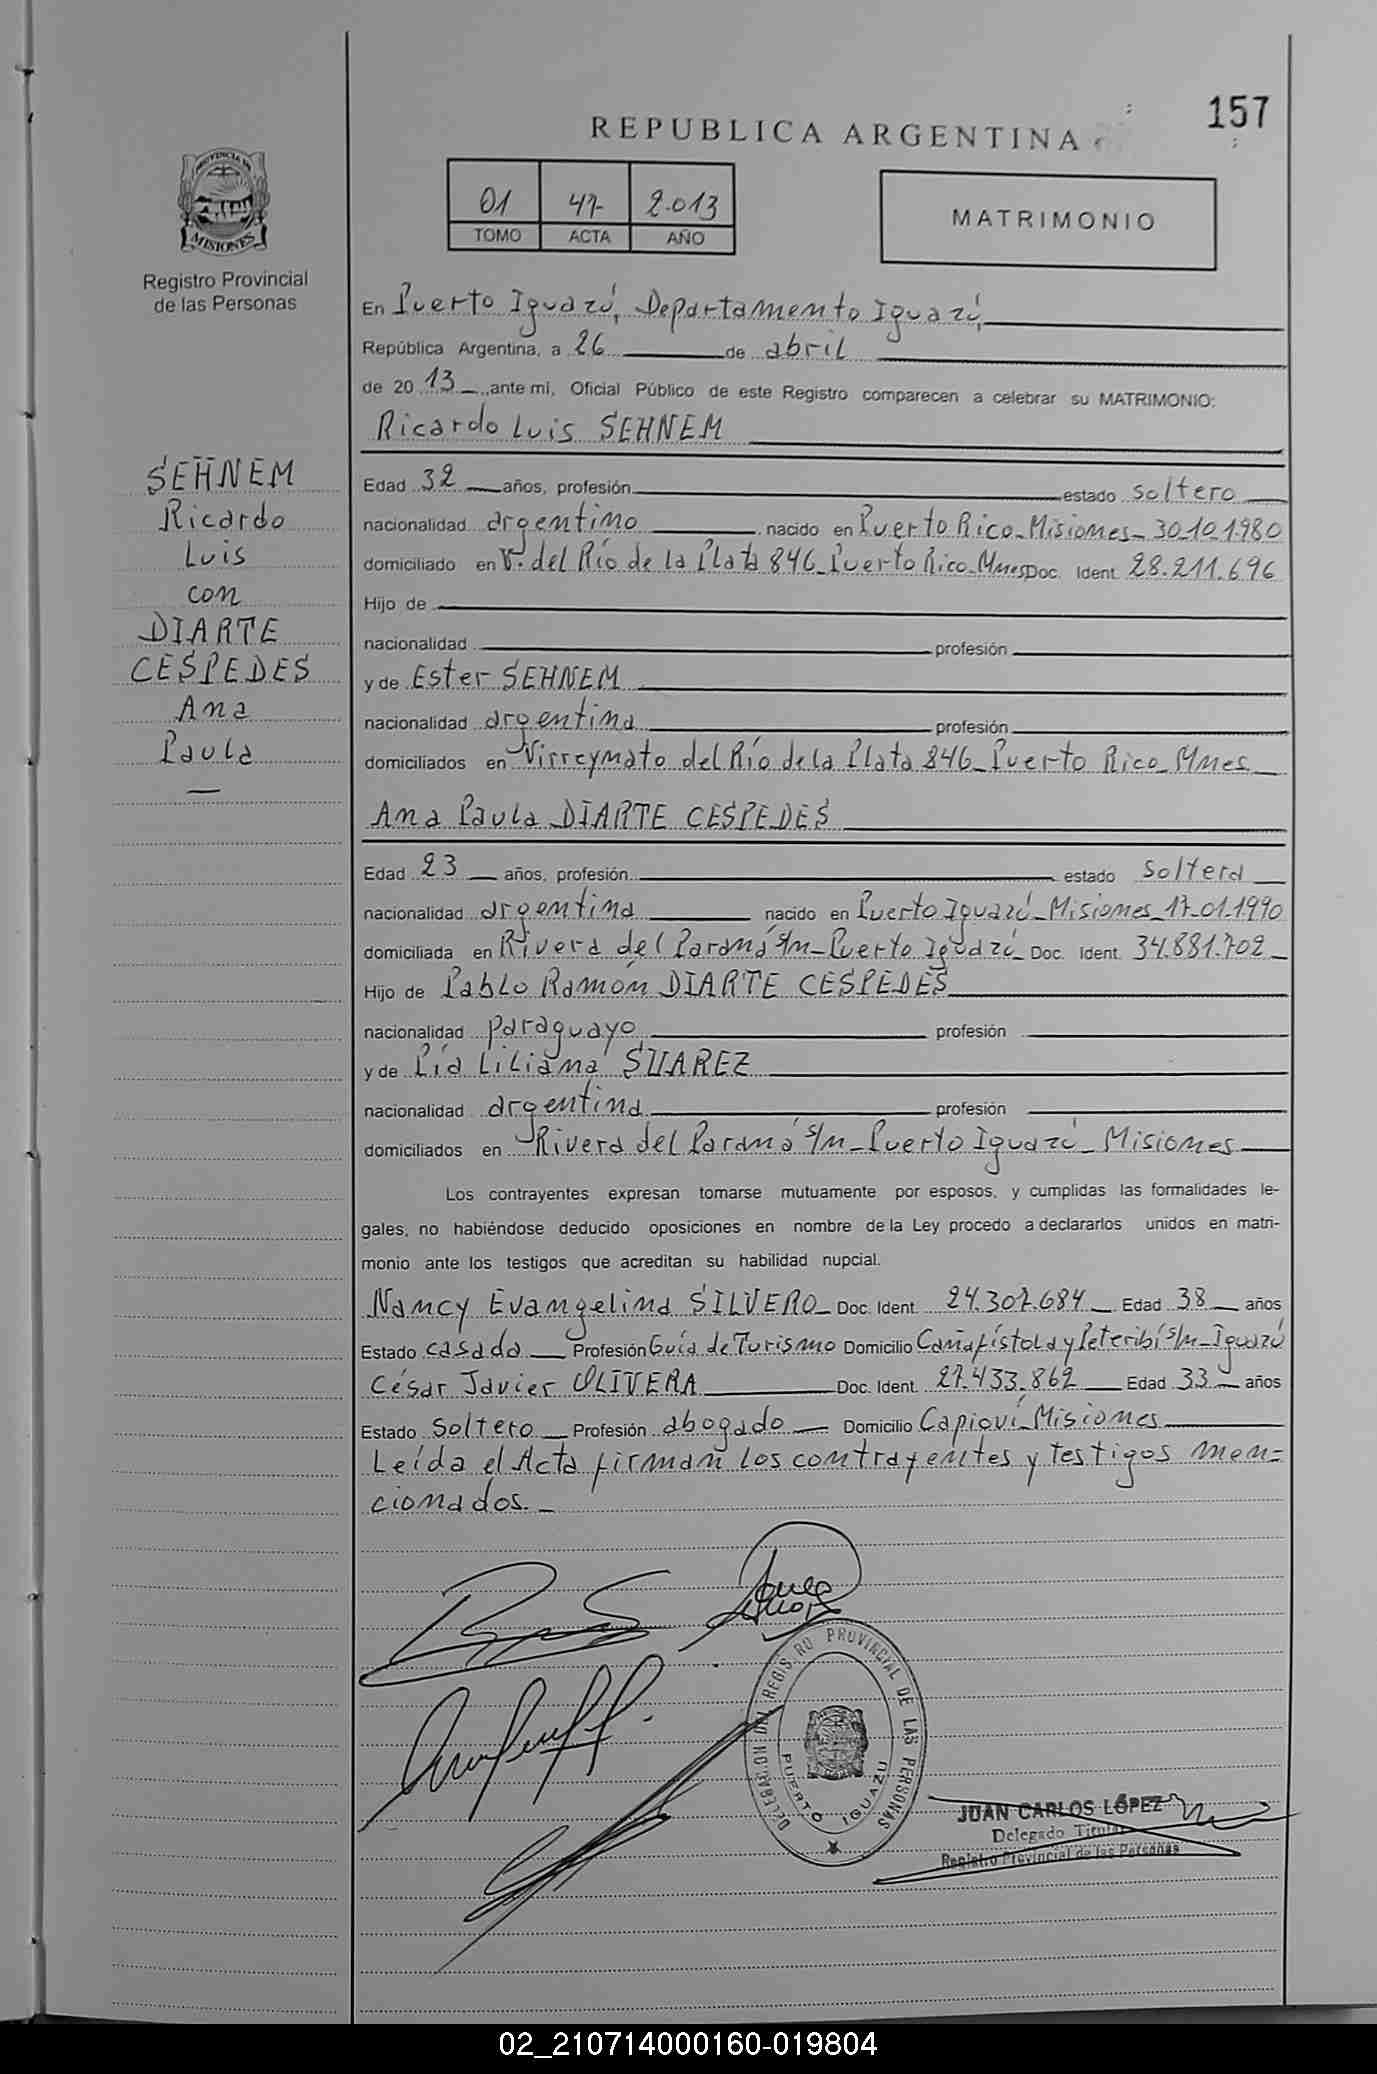 157
REPUBLICA ARGENTINA
PROVINCIA DE
MISIONES
Registro Provincial
de las Personas
01 47 2.013
TOMO ACTA AÑO
MATRIMONIO
En Puerto Iguazú, Departamento Iguazú,
República Argentina, a 26 de abril
de 20 13 , ante mí, Oficial Público de este Registro comparecen a celebrar su MATRIMONIO:
Ricardo Luis SEHNEM
SEHNEM
Ricardo
Luis
con
DIARTE
CESPEDES
Ana
Paula
Edad 32 años, profesión estado soltero
nacionalidad argentino nacido en Puerto Rico-Misiones-30-10-1980
domiciliado en V. del Río de la Plata 846-Puerto Rico-Mnes Doc. Ident. 28.211.696
Hijo de
nacionalidad profesión
y de Ester SEHNEM
nacionalidad argentina profesión
domiciliados en Virreynato del Río de la Plata 846-Puerto Rico-Mnes
Ana Paula DIARTE CESPEDES
Edad 23 años, profesión estado soltera
nacionalidad argentina nacido en Puerto Iguazú-Misiones-17-01-1990
domiciliada en Rivera del Paraná s/n-Puerto Iguazú Doc. Ident. 34.881.702
Hijo de Pablo Ramón DIARTE CESPEDES
nacionalidad paraguayo profesión
y de Pía Liliana SUAREZ
nacionalidad argentina profesión
domiciliados en Rivera del Paraná s/n-Puerto Iguazú-Misiones
Los contrayentes expresan tomarse mutuamente por esposos, y cumplidas las formalidades le-
gales, no habiéndose deducido oposiciones en nombre de la Ley procedo a declararlos unidos en matri-
monio ante los testigos que acreditan su habilidad nupcial.
Nancy Evangelina SILVERO Doc. Ident. 24.307.684 Edad 38 años
Estado casada Profesión Guía de Turismo Domicilio Cañafístola y Peteribí s/n-Iguazú
César Javier OLIVERA Doc. Ident. 27.433.862 Edad 33 años
Estado soltero Profesión abogado Domicilio Capioví-Misiones
Leída el Acta firman los contrayentes y testigos men=
cionados.-
DELEGACION DEL REGISTRO PROVINCIAL DE LAS PERSONAS
PUERTO IGUAZU
JUAN CARLOS LÓPEZ
Delegado Titular
Registro Provincial de las Personas
02_210714000160-019804